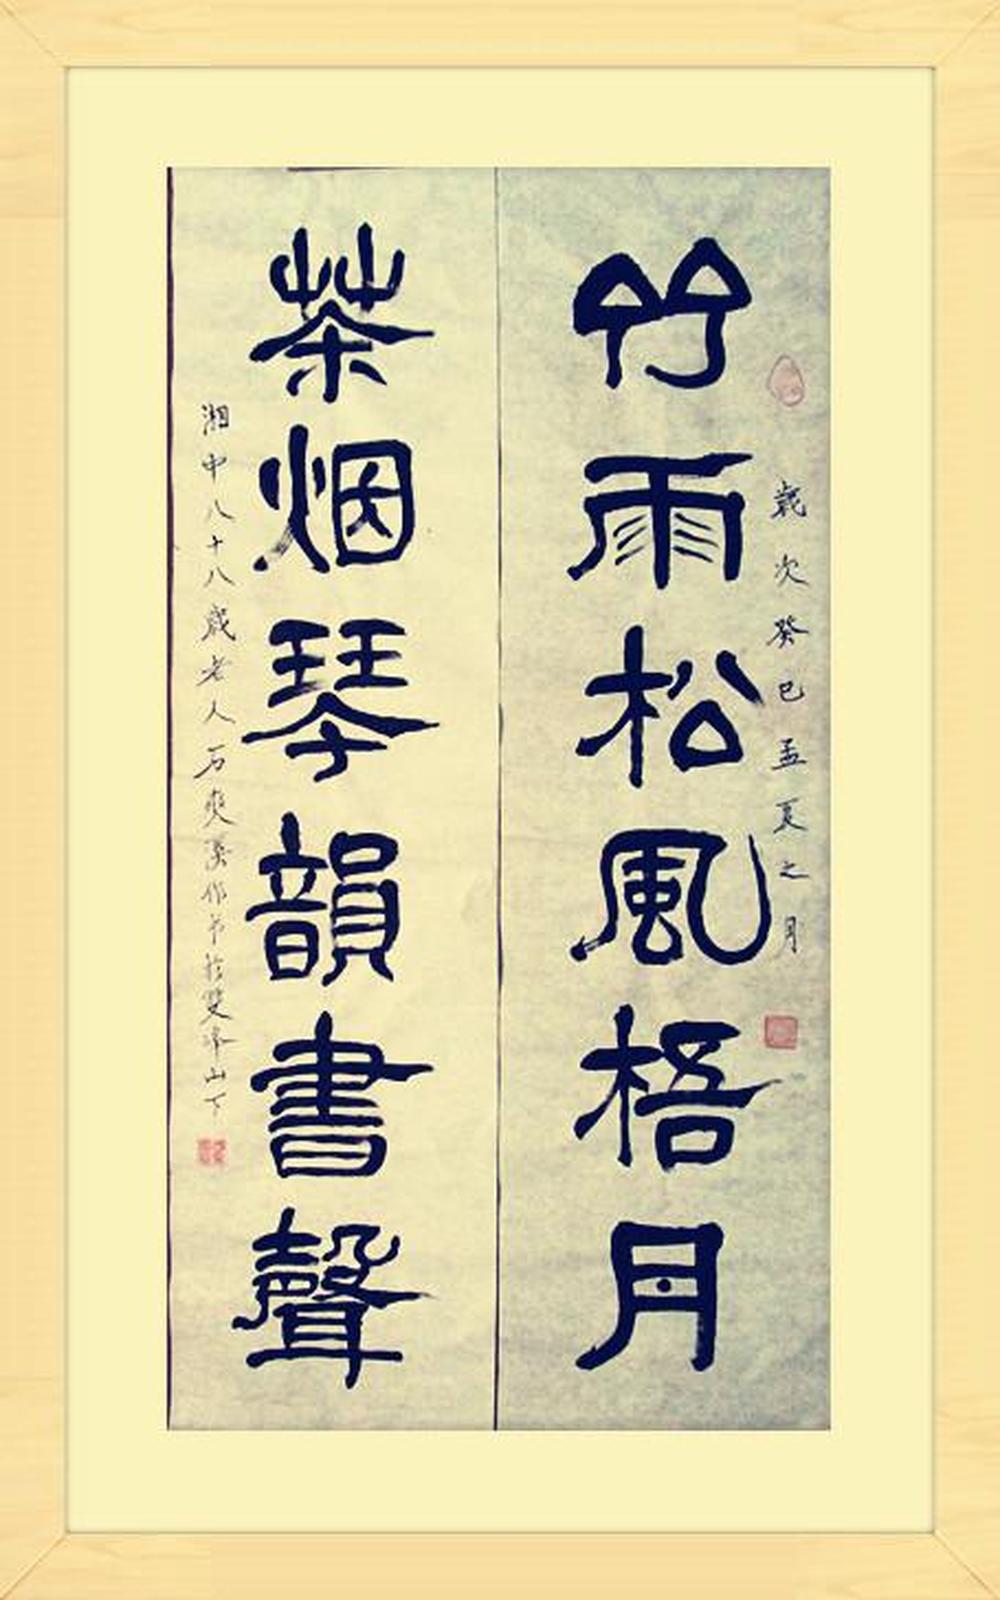 歲次癸巳孟夏之月
竹雨松風梧月
茶烟琴韻書聲
湘中八十八歲老人石爽溪作书於雙峰山下